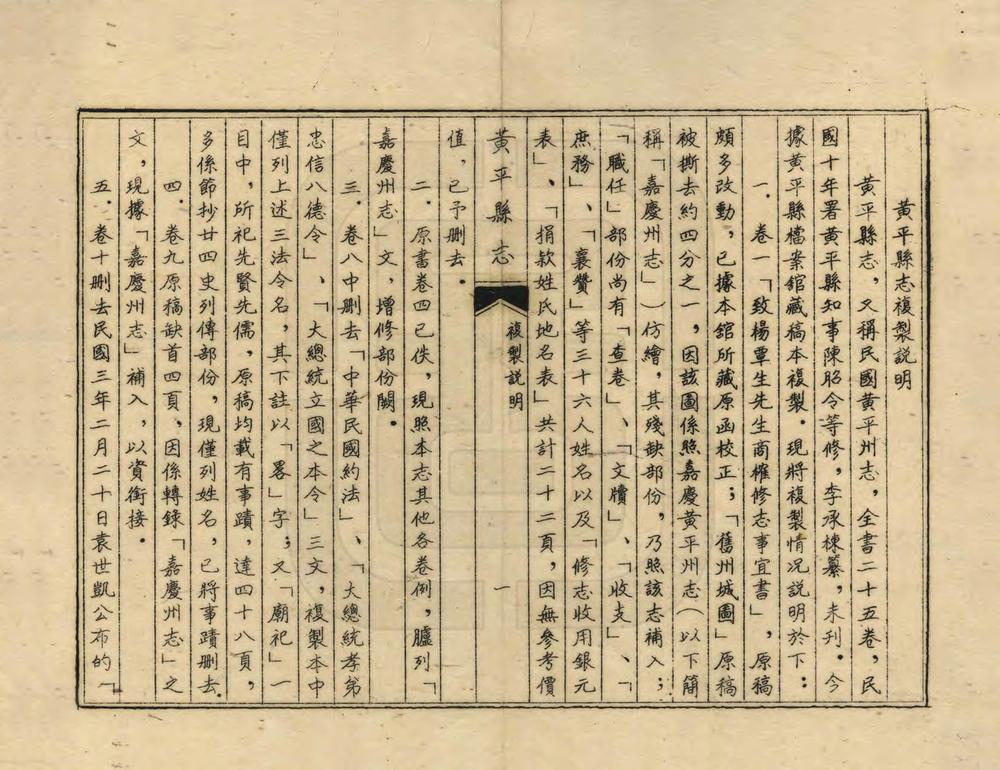 黃平縣志複製説明
黃平縣志，又稱民國黃平州志，全書二十五卷，民
國十年署黃平縣知事陳昭令等修，李承棟纂，未刊。今
據黃平縣檔案舘藏稿本複製。現將複製情况説明於下：
一．卷一「致楊覃生先生商榷修志事宜書」，原稿
頗多改動，已據本舘所藏原函校正；「舊州城圖」原稿
被撕去約四分之一，因該圖係照嘉慶黃平州志（以下簡
稱「嘉慶州志」）仿繪，其殘缺部份，乃照該志補入；
「職任」部份尚有「查卷」、「文牘」、「收支」、「
庶務」、「襄贊」等三十六人姓名以及「修志收用銀元
表」、「捐欵姓氏地名表」共計二十二頁，因無參考價
黃平縣志
複製説明
一
值，已予删去．
二．原書卷四已佚，現照本志其他各卷例，臚列「
嘉慶州志」文，增修部份闕．
三．卷八中删去「中華民國約法」、「大總統孝弟
忠信八德令」、「大總統立國之本令」三文，複製本中
僅列上述三法令名，其下註以「畧」字；又「廟祀」一
目中，所祀先賢先儒，原稿均載有事蹟，達四十八頁，
多係節抄廿四史列傳部份，現僅列姓名，已將事蹟删去．
四．卷九原稿缺首四頁，因係轉錄「嘉慶州志」之
文，現據「嘉慶州志」補入，以資銜接．
五．卷十删去民國三年二月二十日袁世凱公布的「